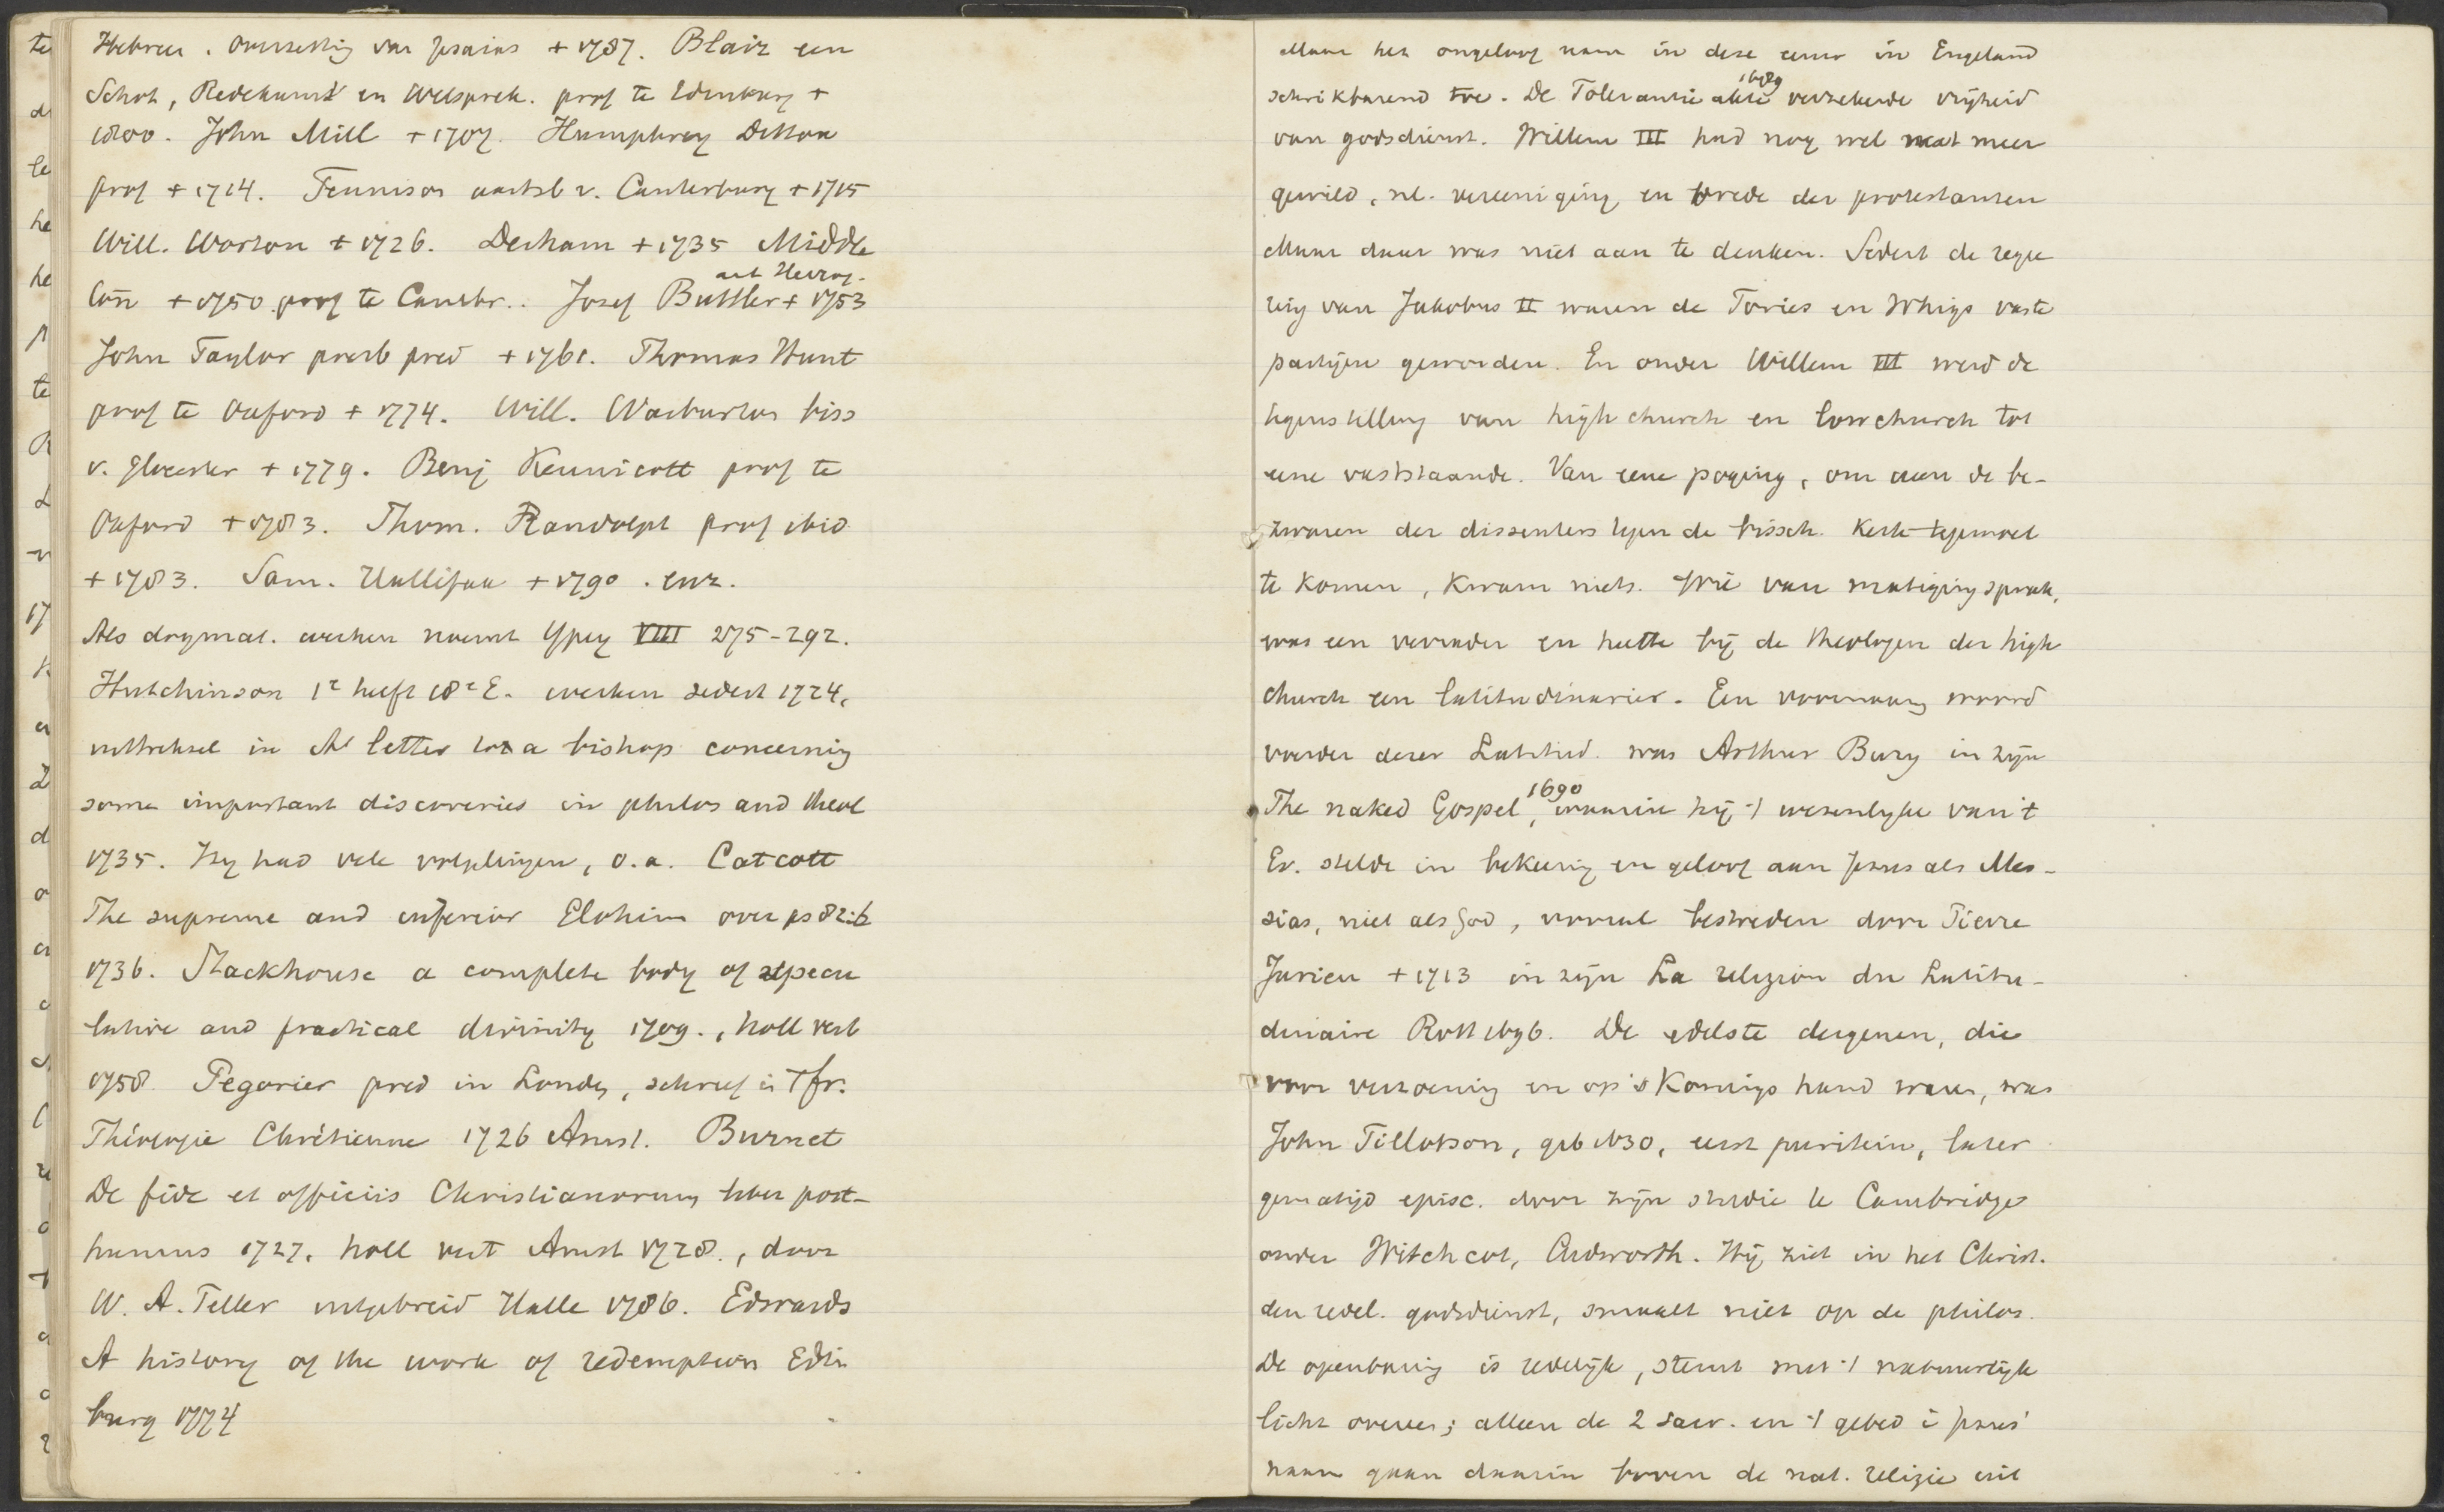 Hebreer. overzetting van Jesaias + 1787. Blair een
Schot, Redekunst en Welsprek. prof te Edinburg +
1800. John Mill + 1707. Humphrey Ditton
prof + 1714. Tennison aartsb v. Canterbury + 1715
Will. Worton + 1726. Derham + 1735 Middle
ton + 1750. prof te Cambr.. Josef Buttler + 1753
John Taylor presb pred + 1761. Thomas Hunt
prof te Oxford + 1774. Will. Warburton biss
v. Glocester + 1779. Benj Kennicott prof te
Oxford + 1783. Thom. Randolph prof ibid
+ 1783. Sam. Hallifax + 1790. enz.
Als dogmat. werken noemt Ypey VIII 275-292.
Hutchinson 1e helft 18e E. werken sedert 1724,
uittreksel in A letter to a bishop concerning
some important discoveries in philos and theol
1735. Hij had vele volgelingen, o.a. Catcott
The supreme and inferior Elohim over ps 82:6
1736. Stackhouse a complete body of specu
lative and practical divinity 1709., holl vert
1758. Pegorier pred in Londen, schreef in 't fr.
Théologie Chrétienne 1726 Amst. Burnet
De fide et officiis Christianorum liber post-
humus 1727. holl vert Amst 1728., door
W. A. Teller uitgebreid Halle 1786. Edwards
A history of the work of redemption Edin
burg 1774
Maar het ongeloof nam in deze eeuw in Engeland
1689
schrikbarend toe. De Tolerantie akte verzekerde vrijheid
van godsdienst. Willem III had nog wel wat meer
gewild, nl. vereeniging en vrede der protestanten
Maar daar was niet aan te denken. Sedert de regee
ring van Jakobus II waren de Tories en Whigs vaste
partijen geworden. En onder Willem III werd de
tegenstelling van high church en lowchurch tot
eene vaststaande. Van eene poging, om aan de be-
zwaren der dissenters tegen de bissch. kerk tegemoet
te komen, kwam niets. Wie van matiging sprak,
was een verrader en heette bij de theologen der high
church een latitudinarier. Een voornaam woord
voerder dezer Latitud. was Arthur Bury in zijn
The naked Gospel, 1690 waarin hij 't wezenlijke van 't
Ev. stelde in bekeering en geloof aan Jezus als Mes-
sias, niet als God, vooral bestreden door Pierre
Jurieu + 1713 in zijn La religion du Latitu-
dinaire Rott 1696. De edelste dergenen, die
voor verzoening en op 's Konings hand waren, was
John Tillotson, geb 1630, eerst puritein, later
gematigd episc. door zijn studie te Cambridge
onder Witchcot, Cudworth. Hij ziet in het Christ.
den redel. godsdienst, smaalt niet op de philos.
De openbaring is redelijk, stemt met 't natuurlijk
licht overeen; alleen de 2 sacr. en 't gebed in Jezus'
naam gaan daarin boven de nat. religie uit